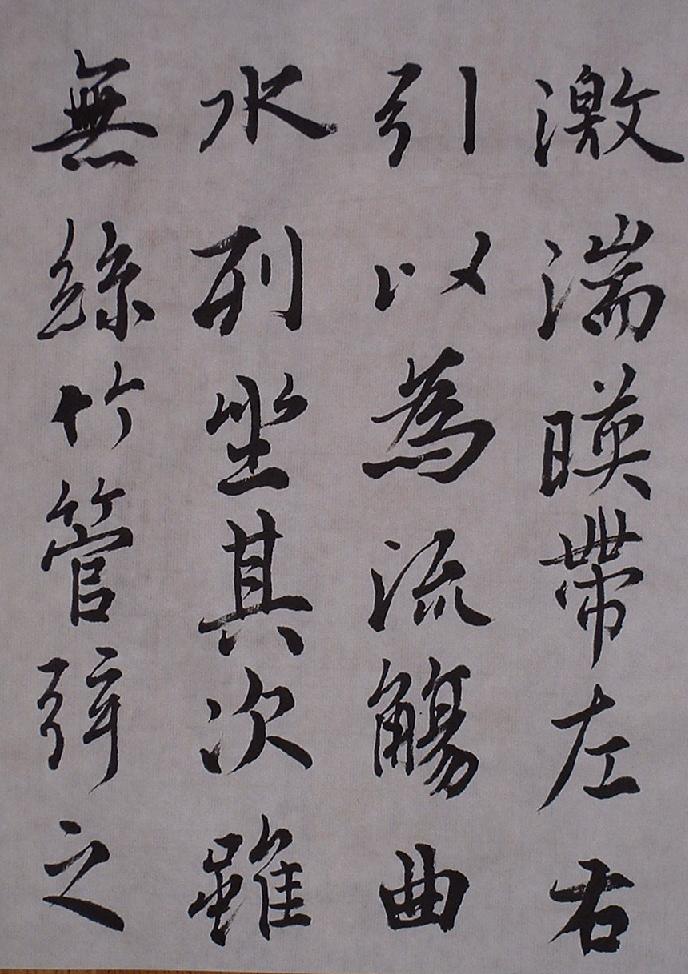 激湍暎帶左右
引以為流觴曲
水列坐其次雖
無絲竹管弦之